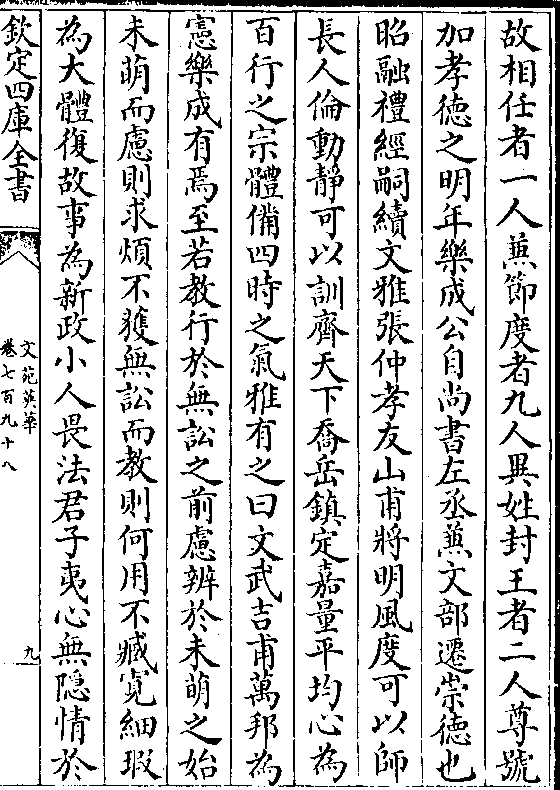 故相任者一人兼節度者九人異姓封王者二人尊號
加孝德之明年樂成公自尚書左丞兼文部遷崇德也
昭融禮經嗣續文雅張仲孝友山甫將明風度可以師
長人倫動靜可以訓齊天下喬岳鎮定嘉量平均心為
百行之宗體備四時之氣雅有之曰文武吉甫萬邦為
憲樂成有焉至若教行於無訟之前慮辨於未萌之始
未萌而慮則求煩不獲無訟而教則何用不臧寛細瑕
為大體復故事為新政小人畏法君子夷心無隱情於
欽定四庫全書
文苑英華
卷七百九十八
九